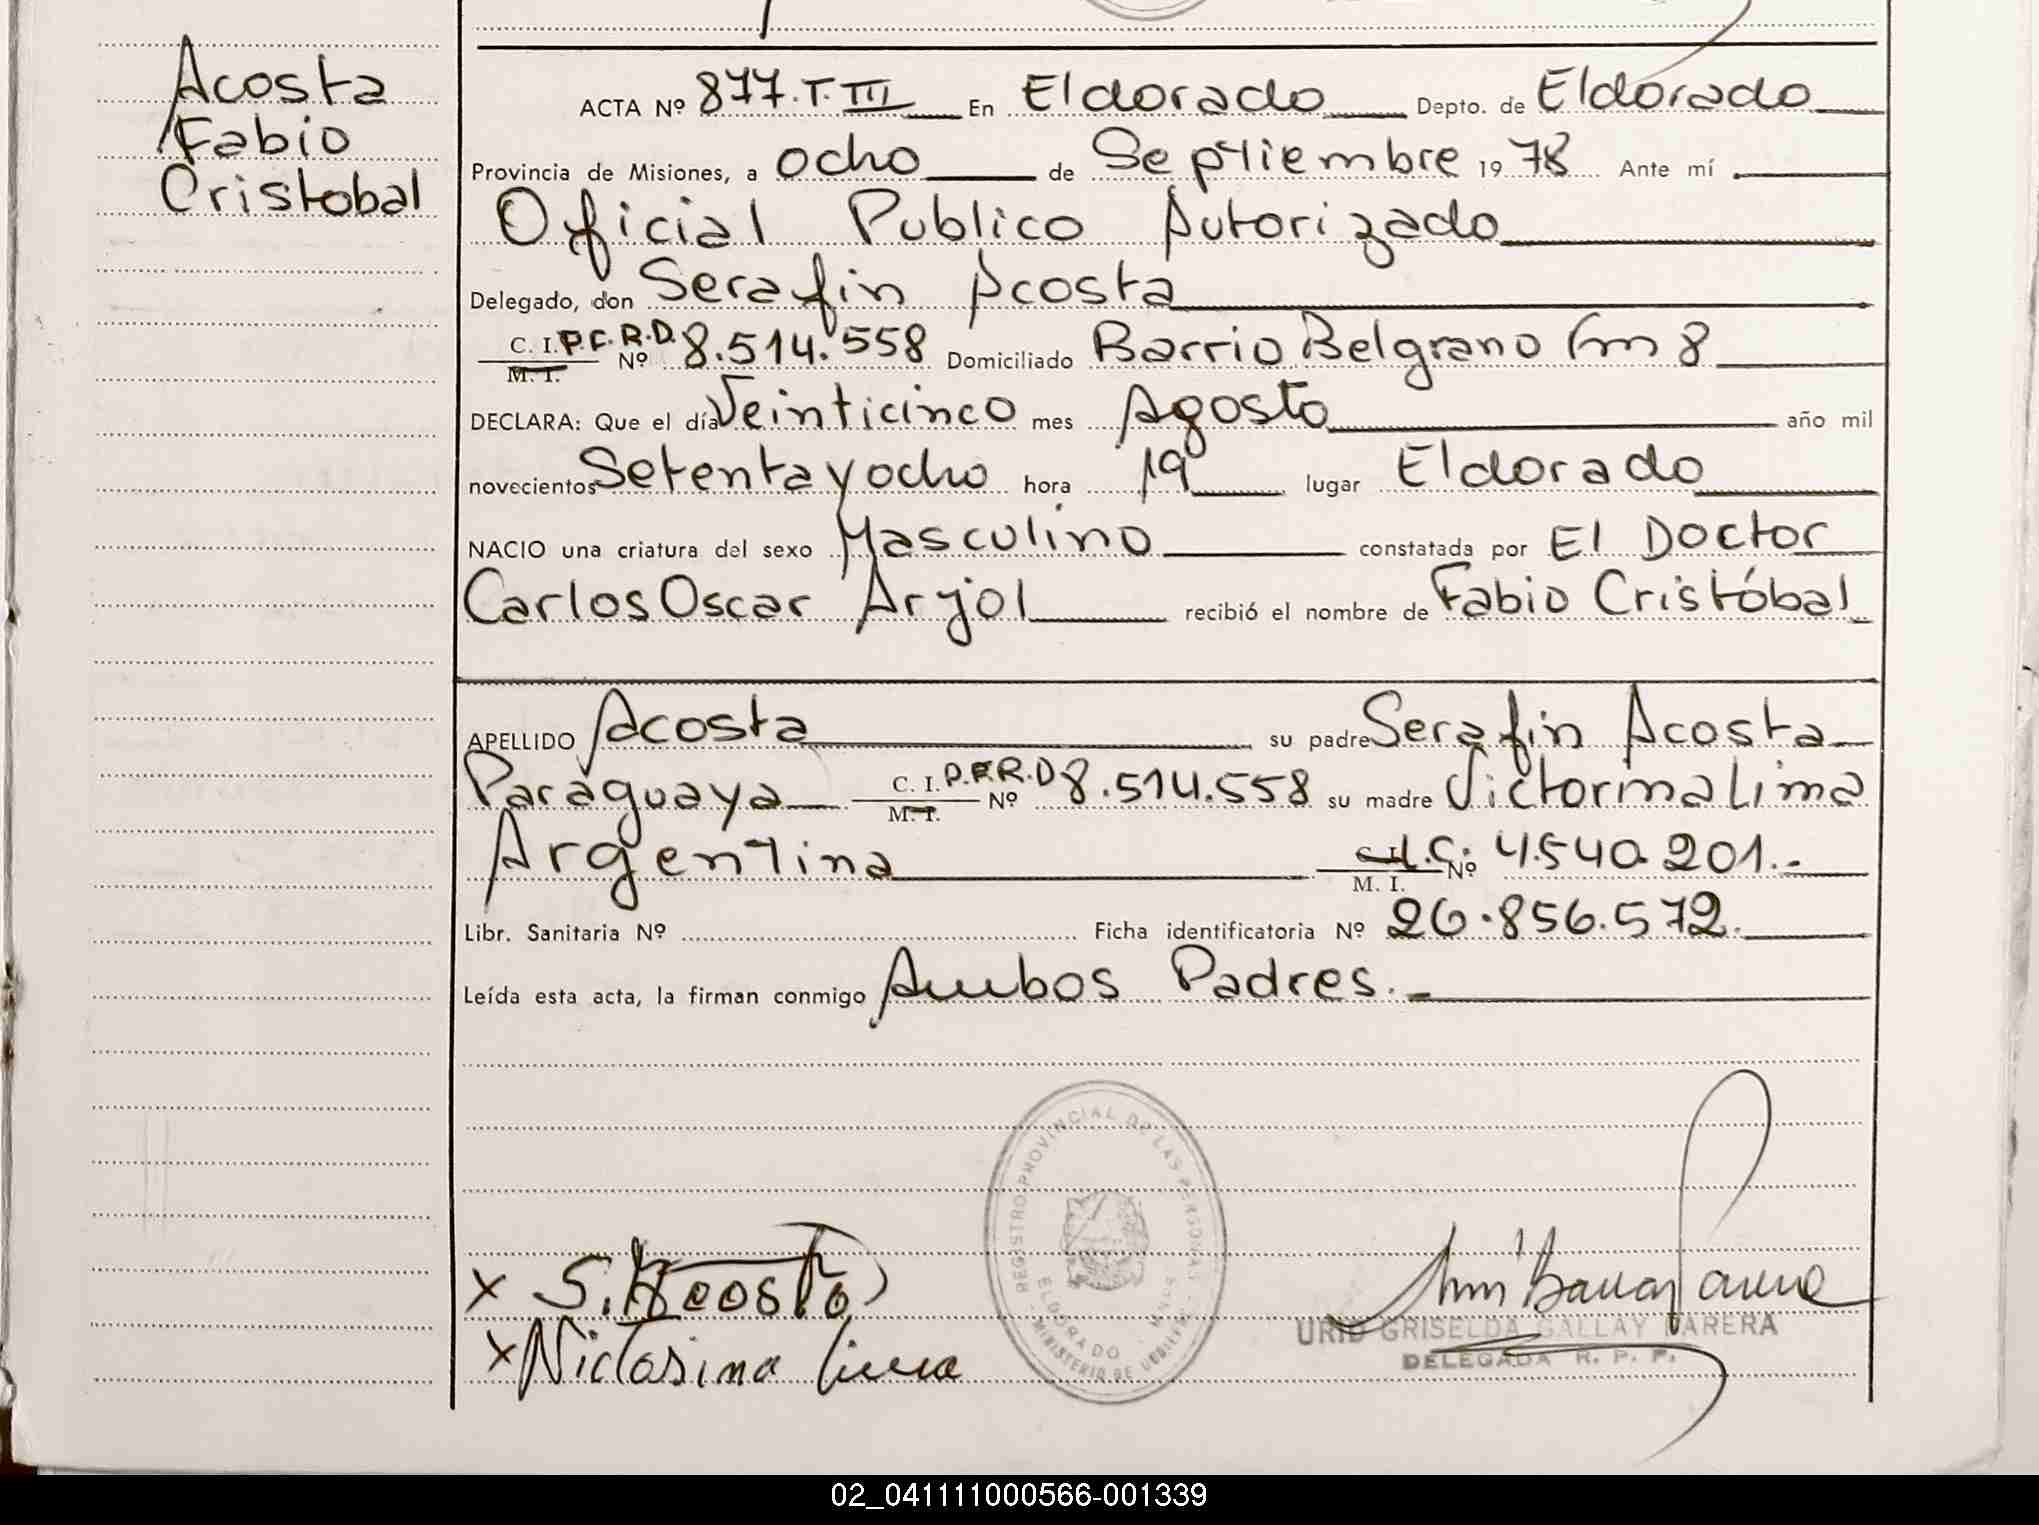 Acosta
Fabio
Cristobal
ACTA Nº 877.T.III En Eldorado Depto. de Eldorado
Provincia de Misiones, a ocho de Septiembre 1978 Ante mí
Oficial Publico Autorizado
Delegado, don Serafin Acosta
C. I. P.F.R.D. Nº 8.514.558 Domiciliado Barrio Belgrano Km 8
M. I.
DECLARA: Que el día Veinticinco mes Agosto año mil
novecientos Setenta y ocho hora 19 lugar Eldorado
NACIO una criatura del sexo Masculino constatada por El Doctor
Carlos Oscar Arjol recibió el nombre de Fabio Cristóbal
APELLIDO Acosta su padre Serafin Acosta
Paraguaya C. I. P.F.R.D Nº 8.514.558 su madre Victorina Lima
M. I.
Argentina L.C. Nº 4.540.201.-
M. I.
Libr. Sanitaria Nº Ficha identificatoria Nº 26.856.572.
Leída esta acta, la firman conmigo Ambos Padres.-
REGISTRO PROVINCIAL DE LAS PERSONAS
ELDORADO - MNES
MINISTERIO DE
x S. Acosta
x Victorina Lima
GRISELDA GALLAY PARERA
DELEGADA R. P. P.
02_041111000566-001339